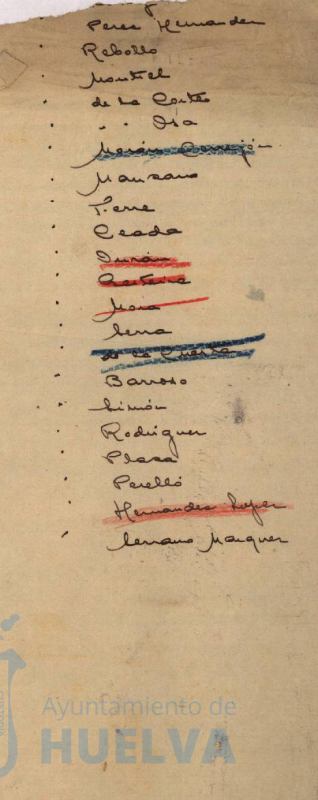 Perez Hernandez
Rebollo
Montiel
de la Corte
" " Osa
Morón Correjón
Manzano
Pierre
Ceada
Durán
Mora
Serra
de la Cuesta
Barroso
Simón
Rodriguez
Plaza
Perelló
Hernandez Lopez
Serrano Marquez
Ayuntamiento de
HUELVA